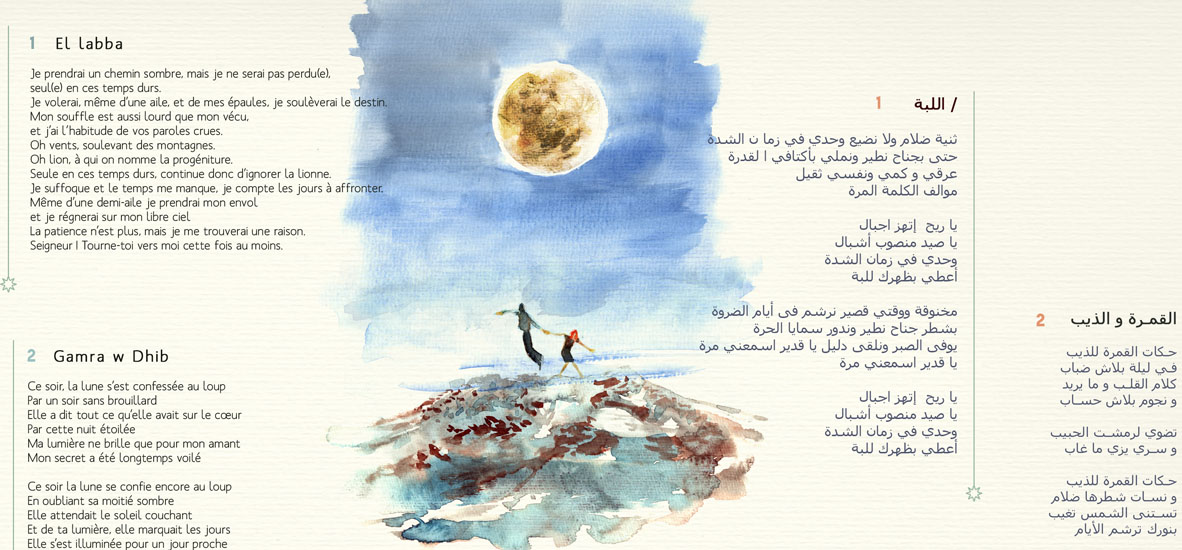 1 El labba
Je prendrai un chemin sombre, mais je ne serai pas perdu(e),
seul(e) en ces temps durs.
Je volerai, même d'une aile, et de mes épaules, je soulèverai le destin.
Mon souffle est aussi lourd que mon vécu,
et j'ai l'habitude de vos paroles crues.
Oh vents, soulevant des montagnes.
Oh lion, à qui on nomme la progéniture.
Seule en ces temps durs, continue donc d'ignorer la lionne.
Je suffoque et le temps me manque, je compte les jours à affronter.
Même d'une demi-aile je prendrai mon envol
et je régnerai sur mon libre ciel
La patience n'est plus, mais je me trouverai une raison.
Seigneur ! Tourne-toi vers moi cette fois au moins.
2 Gamra w Dhib
Ce soir, la lune s'est confessée au loup
Par un soir sans brouillard
Elle a dit tout ce qu'elle avait sur le cœur
Par cette nuit étoilée
Ma lumière ne brille que pour mon amant
Mon secret a été longtemps voilé
Ce soir la lune se confie encore au loup
En oubliant sa moitié sombre
Elle attendait le soleil couchant
Et de ta lumière, elle marquait les jours
Elle s'est illuminée pour un jour proche
1 / اللبة
ثنية ضلام ولا نضيع وحدي في زما ن الشدة
حتى بجناح نطير ونملي بأكتافي ا لقدرة
عرقي و كمي ونفسي ثقيل
موالف الكلمة المرة
يا ريح إتهز اجبال
يا صيد منصوب أشبال
وحدي في زمان الشدة
أعطي بظهرك للبة
مخنوقة ووقتي قصير نرشم فى أيام الضروة
بشطر جناح نطير وندور سمايا الحرة
يوفى الصبر ونلقى دليل يا قدير اسمعني مرة
يا قدير اسمعني مرة
يا ريح إتهز اجبال
يا صيد منصوب أشبال
وحدي في زمان الشدة
أعطي بظهرك للبة
2 القمرة و الذيب
حكات القمرة للذيب
في ليلة بلاش ضباب
كلام القلب و ما يريد
و نجوم بلاش حساب
تضوي لرمشت الحبيب
و سري يزي ما غاب
حكات القمرة للذيب
و نسات شطرها ضلام
تستنى الشمس تغيب
بنورك ترشم الأيام